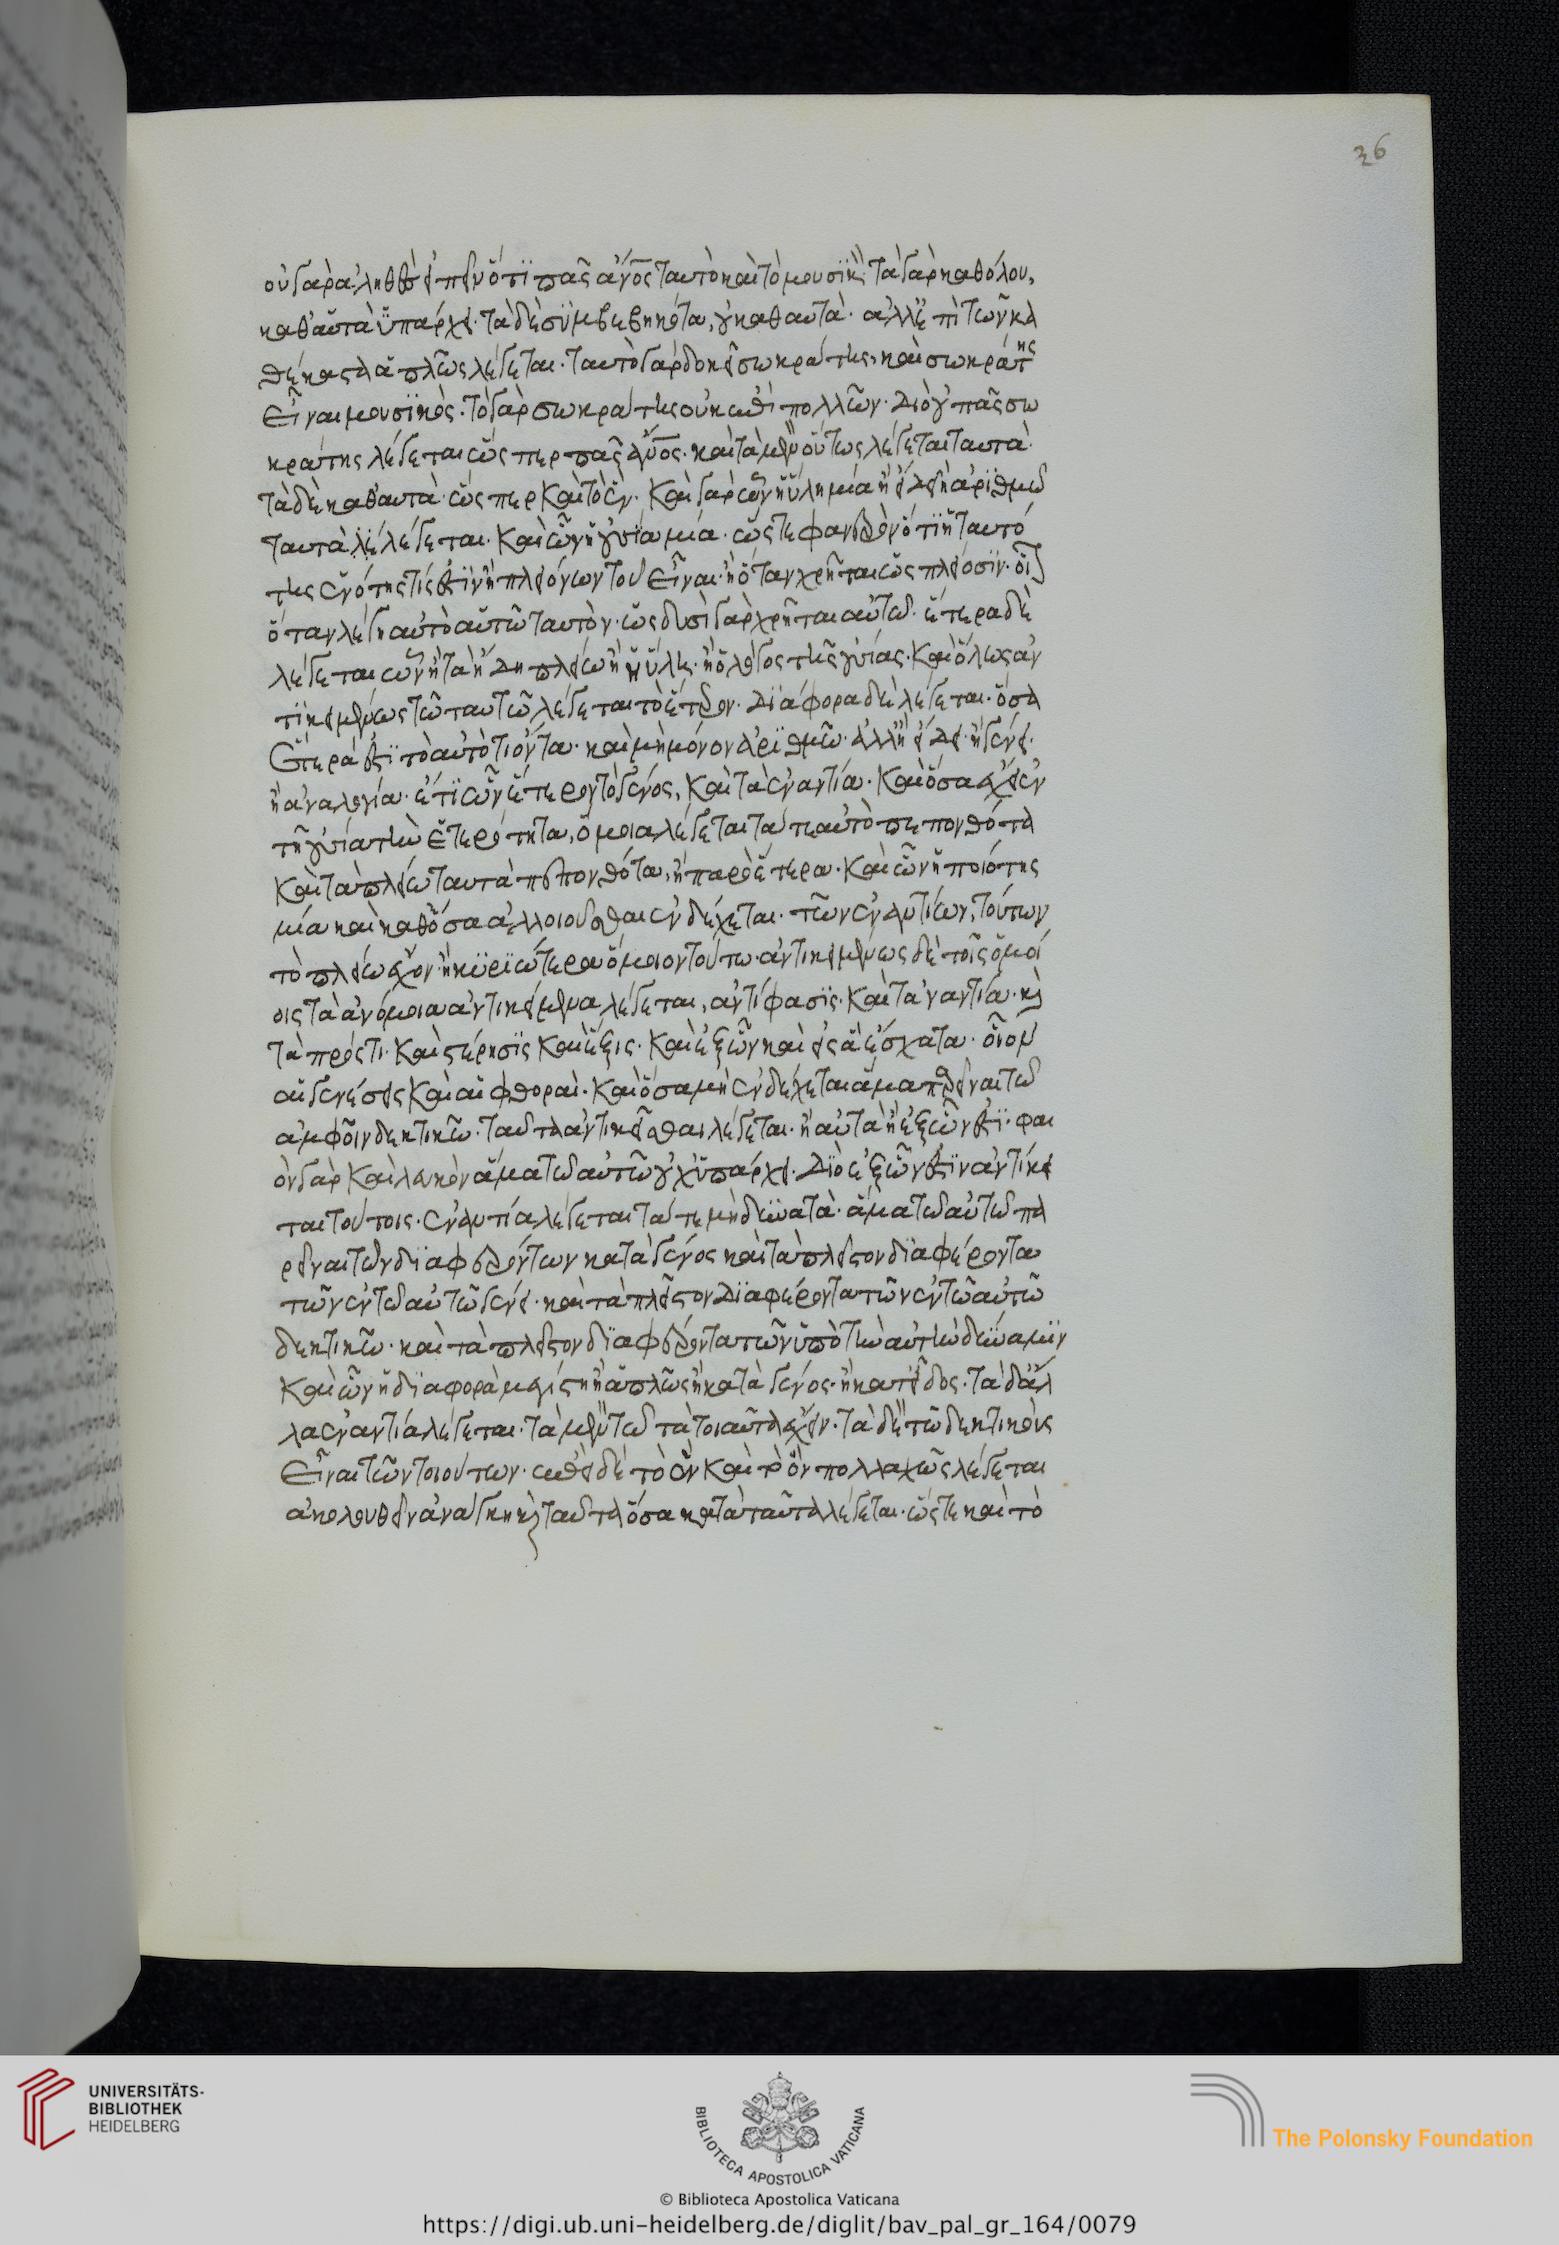 36
οὐ γὰρ ἀληθὲς εἰπεῖν ὅτι πᾶς ἄνος ταυτὸ καὶ τὸ μουσικὸν· τὰ γὰρ καθόλου,
καθ' αὑτὰ ὑπάρχει· τὰ δὲ συμβεβηκότα, οὐ καθ αυτὰ· αλλ' ἐπὶ τῶν κα
θέκαστα ἁπλῶς λέγεται· ταυτὸ γὰρ δοκεῖ σωκράτης, καὶ σωκράτης
εἶναι μουσικὸς· τὸ γὰρ σωκράτης οὐκ ἐπὶ πολλῶν· διὸ οὐ πᾶς σω
κράτης λέγεται ὥσπερ πᾶς ἄνος· καὶ τὰ μὲν οὕτως λέγεται ταυτὰ·
τὰ δὲ καθ' αυτὰ· ὥσπερ καὶ τὸ ἓν· καὶ γὰρ ὧν ἡ ὕλη μία ἢ εἴδει ἢ ἀριθμῶ
ταυτὰ λέγεται· καὶ ὧν ἡ οὐσία μία· ὥστε φανερὸν ὅτι ἡ ταυτό
της ἑνότης τίς ἐστιν ἢ πλειόνων τοῦ εἶναι· ἢ ὅταν χρῆται ὡς πλείοσιν· οἷον
ὅταν λέγη αὐτὸ αὑτῶ ταυτὸν· ὡς δυσὶ γὰρ χρῆται αὐτῶ· ἕτερα δὲ
λέγεται ὧν ἢ τὰ εἴδη πλείω ἢ ἡ ὕλη· ἢ ὁ λόγος τῆς οὐσίας· καὶ ὅλως ἀν
τικειμένως τῶ ταυτῶ λέγεται τὸ ἕτερον· διάφορα δὲ λέγεται· ὅσα
ἕτερά ἐστι τὸ αὐτὸ τι ὄντα· καὶ μὴ μόνον ἀριθμῶ· ἀλλ' ἢ εἴδει· ἢ γένει·
ἢ ἀναλογία· ἔτι ὧν ἕτερον τὸ γένος, καὶ τὰ ἐναντία· καὶ ὅσα ἔχει ἐν
τῆ οὐσία τὴν ἑτερότητα, ὅμοια λέγεται τά τε αὐτὸ πεπονθότα
καὶ τὰ πλείω ταυτὰ πεπονθότα, ἢ παρὸ ἕτερα· καὶ ὧν ἡ ποιότης
μία καὶ καθ' ὅσα ἀλλοιοῦσθαι ἐνδέχεται· τῶν ἐναντίων, τούτων
τὸ πλείω ἔχον· ἢ κυριώτερον ὅμοιον τούτω· ἀντικειμένως δὲ τοῖς ὁμοί
οις τὰ ἀνόμοια ἀντικείμενα λέγεται, ἀντίφασις· καὶ τἀναντία· κὶ
τὰ πρός τι· καὶ στέρησις καὶ ἕξις· καὶ ἐξ ὧν καὶ εἰς ἃ ἔσχατα· οἷον
αἱ γενέσεις καὶ αἱ φθοραὶ· καὶ ὅσα μὴ ἐνδέχεται ἅμα παρεῖναι τῶ
ἀμφοῖν δεκτικῶ· ταῦτα ἀντικεῖσθαι λέγεται· ἢ αὐτὰ ἢ ἐξ ὧν ἐστι· φαι
ὸν γὰρ καὶ λευκὸν ἅμα τῶ αὐτῶ οὐχ ὑπάρχει· διὸ ἐξ ὧν ἐστιν ἀντίκει
ται τούτοις· ἐναντία λέγεται τά τε μὴ δυνατὰ· ἅμα τῶ αὐτῶ πα
ρεῖναι τῶν διαφερόντων κατὰ γένος καὶ τὰ πλεῖστον διαφέροντα
τῶν ἐν τῶ αὐτῶ γένει· καὶ τὰ πλεῖστον διαφέροντα τῶν ἐν τῶ αὐτῶ
δεκτικῶ· καὶ τὰ πλεῖστον διαφέροντα τῶν ὑπὸ τὴν αὐτὴν δύναμιν
καὶ ὧν ἡ διαφορὰ μεγίστη ἢ ἁπλῶς ἢ κατὰ γένος· ἢ κατ' εἶδος· τὰ δ' ἄλ
λα ἐναντία λέγεται· τὰ μὲν τῶ τὰ τοιαῦτα ἔχειν· τὰ δὲ τῶ δεκτικὰ
εἶναι τῶν τοιούτων· ἐπεὶ δὲ τὸ ἓν καὶ τὸ ὂν πολλαχῶς λέγεται
ἀκολουθεῖν ἀνάγκη κὶ ταῦτα ὅσα κατὰ ταῦτα λέγεται· ὥστε καὶ τὸ
UNIVERSITÄTS-
BIBLIOTHEK
HEIDELBERG
BIBLIOTECA APOSTOLICA VATICANA
The Polonsky Foundation
© Biblioteca Apostolica Vaticana
https://digi.ub.uni-heidelberg.de/diglit/bav_pal_gr_164/0079